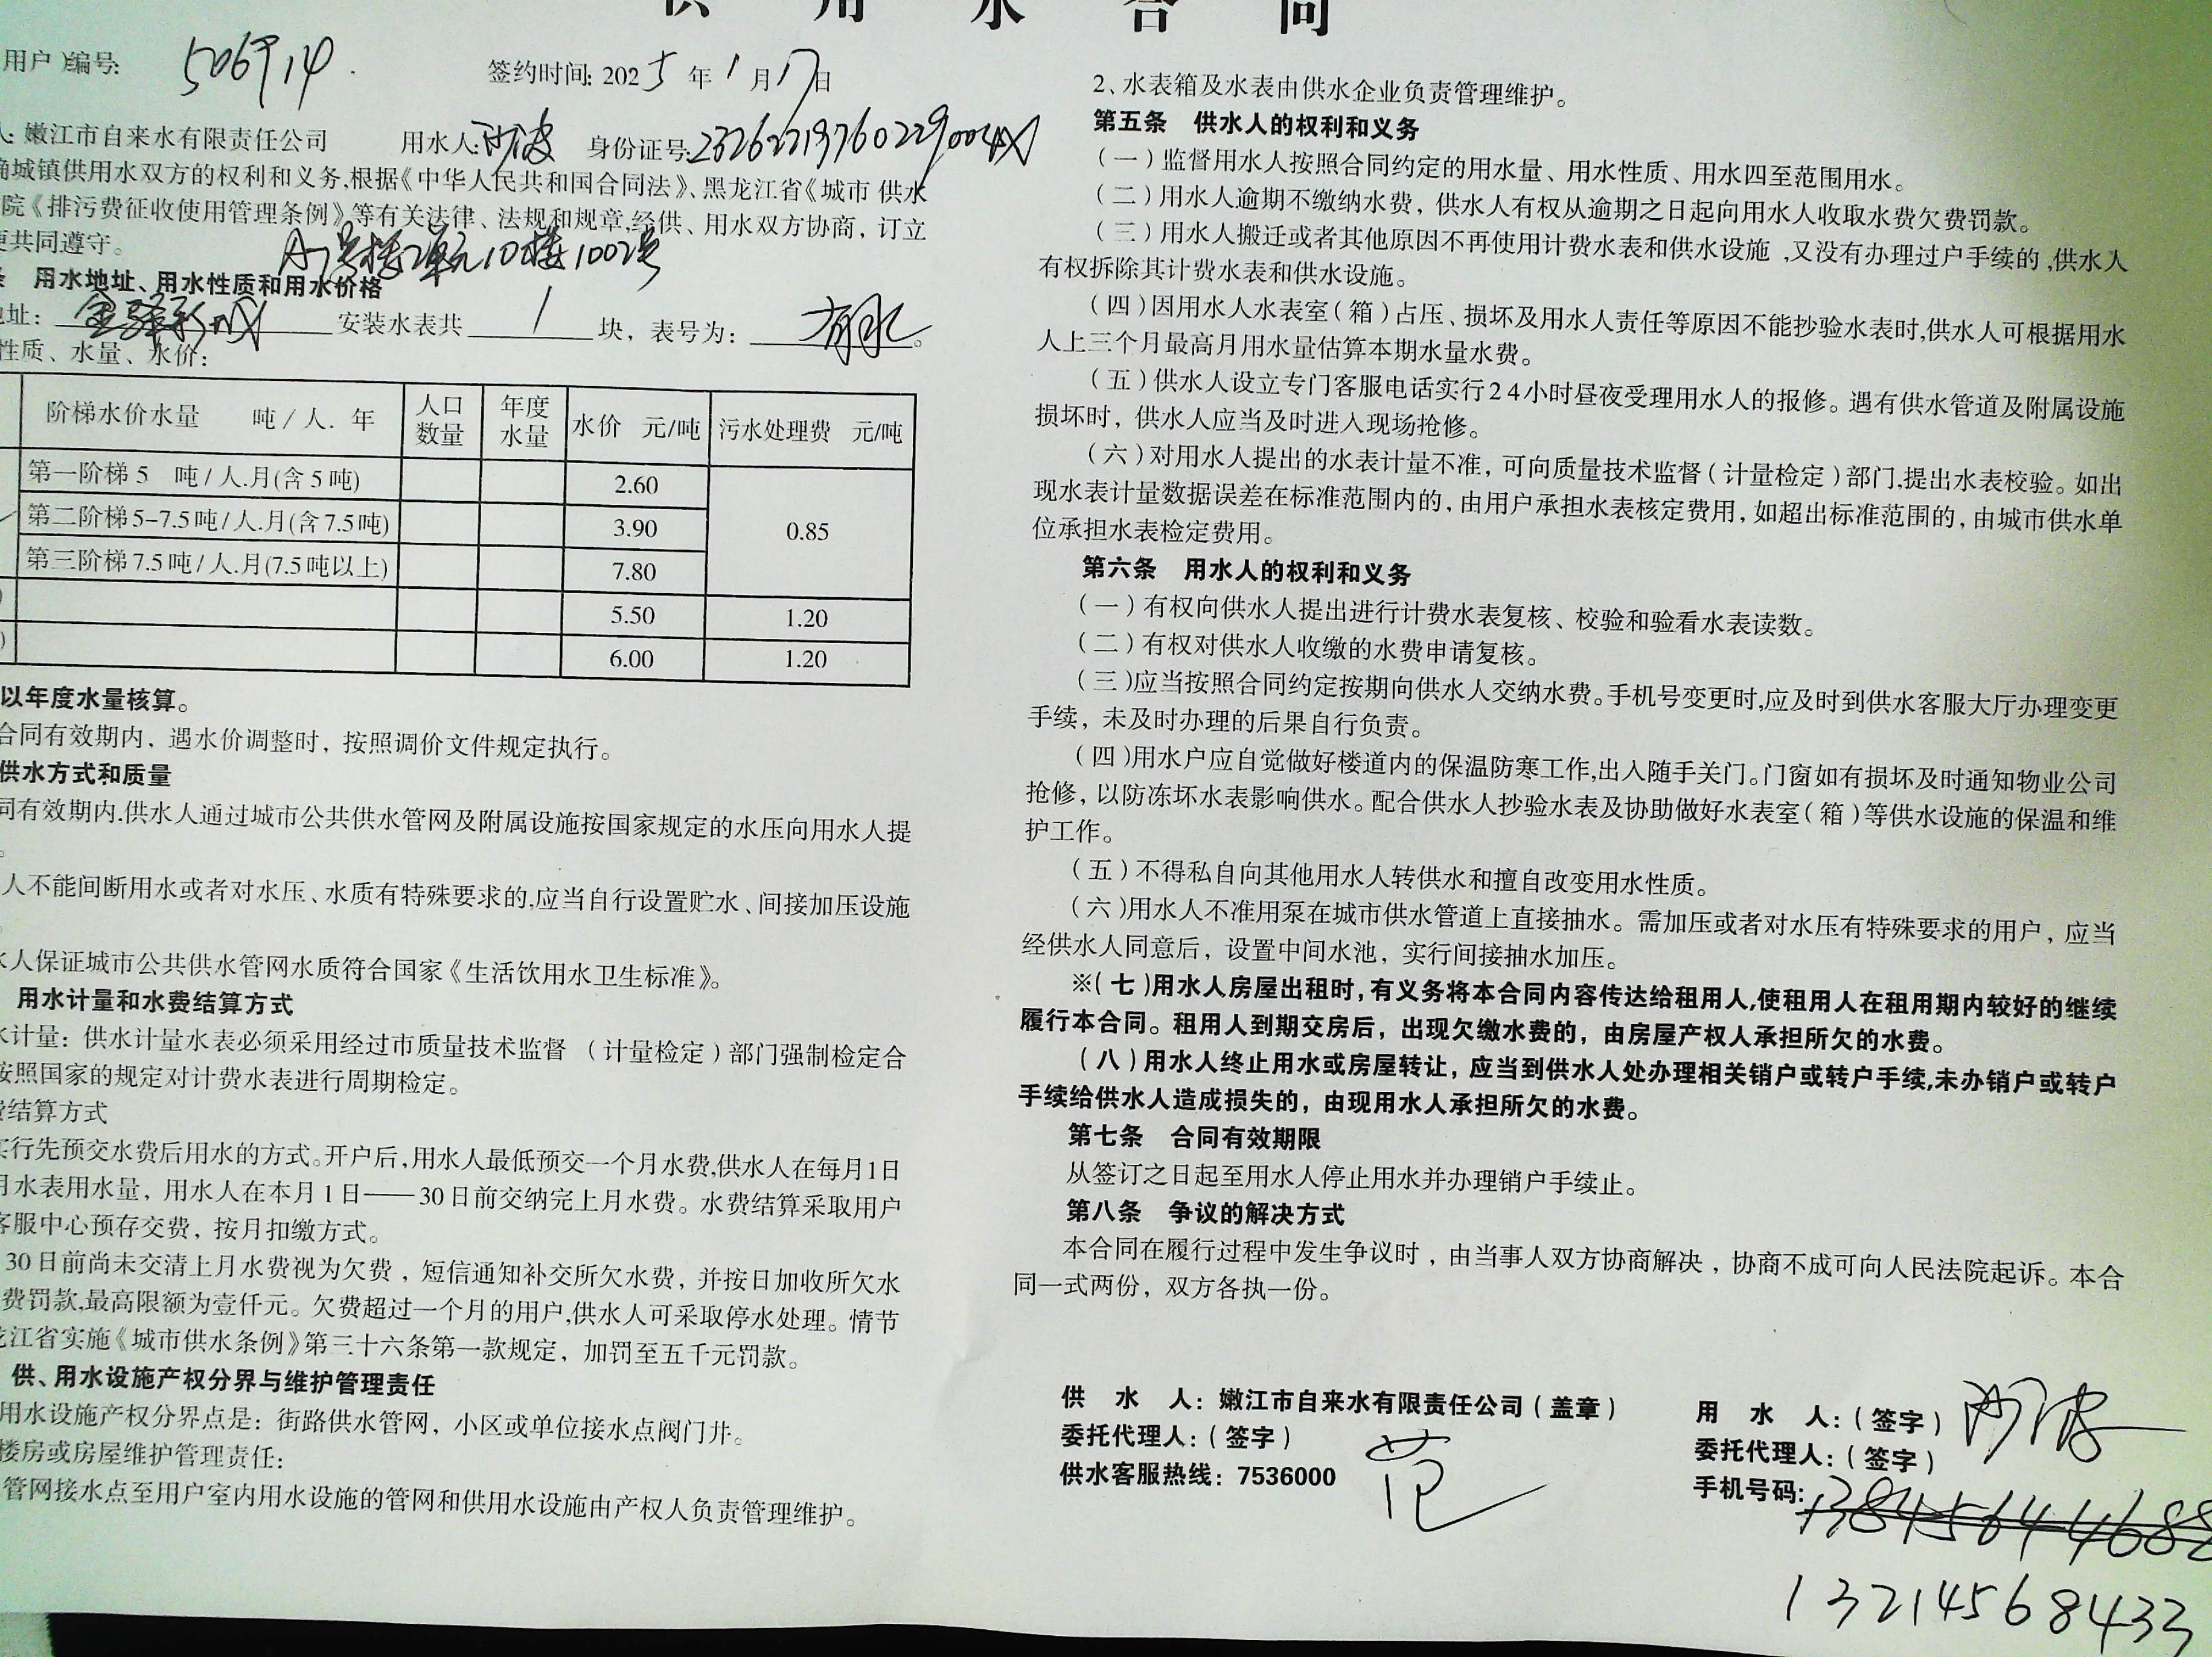 供 用 水 合 同
用户)编号:
签约时间: 2025 年 1 月 17 日
人: 嫩江市自来水有限责任公司 用水人: 身份证号:
确城镇供用水双方的权利和义务,根据《中华人民共和国合同法》、黑龙江省《城市 供水
院《排污费征收使用管理条例》等有关法律、法规和规章,经供、用水双方协商, 订立
更共同遵守。
A 号楼2单元10楼1002号
条 用水地址、用水性质和用水价格
地址: 安装水表共 1 块, 表号为: 。
性质、水量、水价:
阶梯水价水量 吨/人. 年 人口数量 年度水量 水价 元/吨 污水处理费 元/吨
第一阶梯 5 吨/人.月(含 5 吨) 2.60
第二阶梯 5-7.5 吨/人.月(含 7.5 吨) 3.90 0.85
第三阶梯 7.5 吨/人.月(7.5 吨以上) 7.80
5.50 1.20
6.00 1.20
以年度水量核算。
合同有效期内, 遇水价调整时, 按照调价文件规定执行。
供水方式和质量
同有效期内.供水人通过城市公共供水管网及附属设施按国家规定的水压向用水人提
。
人不能间断用水或者对水压、水质有特殊要求的,应当自行设置贮水、间接加压设施
。
水人保证城市公共供水管网水质符合国家《生活饮用水卫生标准》。
用水计量和水费结算方式
水计量: 供水计量水表必须采用经过市质量技术监督 (计量检定)部门强制检定合
按照国家的规定对计费水表进行周期检定。
费结算方式
实行先预交水费后用水的方式。开户后,用水人最低预交一个月水费,供水人在每月1日
月水表用水量, 用水人在本月 1 日——30 日前交纳完上月水费。水费结算采取用户
客服中心预存交费, 按月扣缴方式。
30 日前尚未交清上月水费视为欠费, 短信通知补交所欠水费, 并按日加收所欠水
费罚款,最高限额为壹仟元。欠费超过一个月的用户,供水人可采取停水处理。情节
龙江省实施《城市供水条例》第三十六条第一款规定, 加罚至五千元罚款。
供、用水设施产权分界与维护管理责任
用水设施产权分界点是: 街路供水管网, 小区或单位接水点阀门井。
楼房或房屋维护管理责任:
管网接水点至用户室内用水设施的管网和供用水设施由产权人负责管理维护。
2、水表箱及水表由供水企业负责管理维护。
第五条 供水人的权利和义务
(一)监督用水人按照合同约定的用水量、用水性质、用水四至范围用水。
(二)用水人逾期不缴纳水费, 供水人有权从逾期之日起向用水人收取水费欠费罚款。
(三)用水人搬迁或者其他原因不再使用计费水表和供水设施 ,又没有办理过户手续的 ,供水人
有权拆除其计费水表和供水设施。
(四)因用水人水表室(箱)占压、损坏及用水人责任等原因不能抄验水表时,供水人可根据用水
人上三个月最高月用水量估算本期水量水费。
(五)供水人设立专门客服电话实行24小时昼夜受理用水人的报修。遇有供水管道及附属设施
损坏时, 供水人应当及时进入现场抢修。
(六)对用水人提出的水表计量不准, 可向质量技术监督(计量检定)部门,提出水表校验。如出
现水表计量数据误差在标准范围内的, 由用户承担水表核定费用, 如超出标准范围的, 由城市供水单
位承担水表检定费用。
第六条 用水人的权利和义务
(一)有权向供水人提出进行计费水表复核、校验和验看水表读数。
(二)有权对供水人收缴的水费申请复核。
(三)应当按照合同约定按期向供水人交纳水费。手机号变更时,应及时到供水客服大厅办理变更
手续, 未及时办理的后果自行负责。
(四)用水户应自觉做好楼道内的保温防寒工作,出入随手关门。门窗如有损坏及时通知物业公司
抢修, 以防冻坏水表影响供水。配合供水人抄验水表及协助做好水表室(箱)等供水设施的保温和维
护工作。
(五)不得私自向其他用水人转供水和擅自改变用水性质。
(六)用水人不准用泵在城市供水管道上直接抽水。需加压或者对水压有特殊要求的用户, 应当
经供水人同意后, 设置中间水池, 实行间接抽水加压。
※(七)用水人房屋出租时, 有义务将本合同内容传达给租用人,使租用人在租用期内较好的继续
履行本合同。租用人到期交房后, 出现欠缴水费的, 由房屋产权人承担所欠的水费。
(八)用水人终止用水或房屋转让, 应当到供水人处办理相关销户或转户手续,未办销户或转户
手续给供水人造成损失的, 由现用水人承担所欠的水费。
第七条 合同有效期限
从签订之日起至用水人停止用水并办理销户手续止。
第八条 争议的解决方式
本合同在履行过程中发生争议时, 由当事人双方协商解决, 协商不成可向人民法院起诉。本合
同一式两份, 双方各执一份。
供 水 人: 嫩江市自来水有限责任公司(盖章)
委托代理人:(签字) 范
供水客服热线: 7536000
用 水 人:(签字)
委托代理人:(签字)
手机号码: 13845644688
13214568433